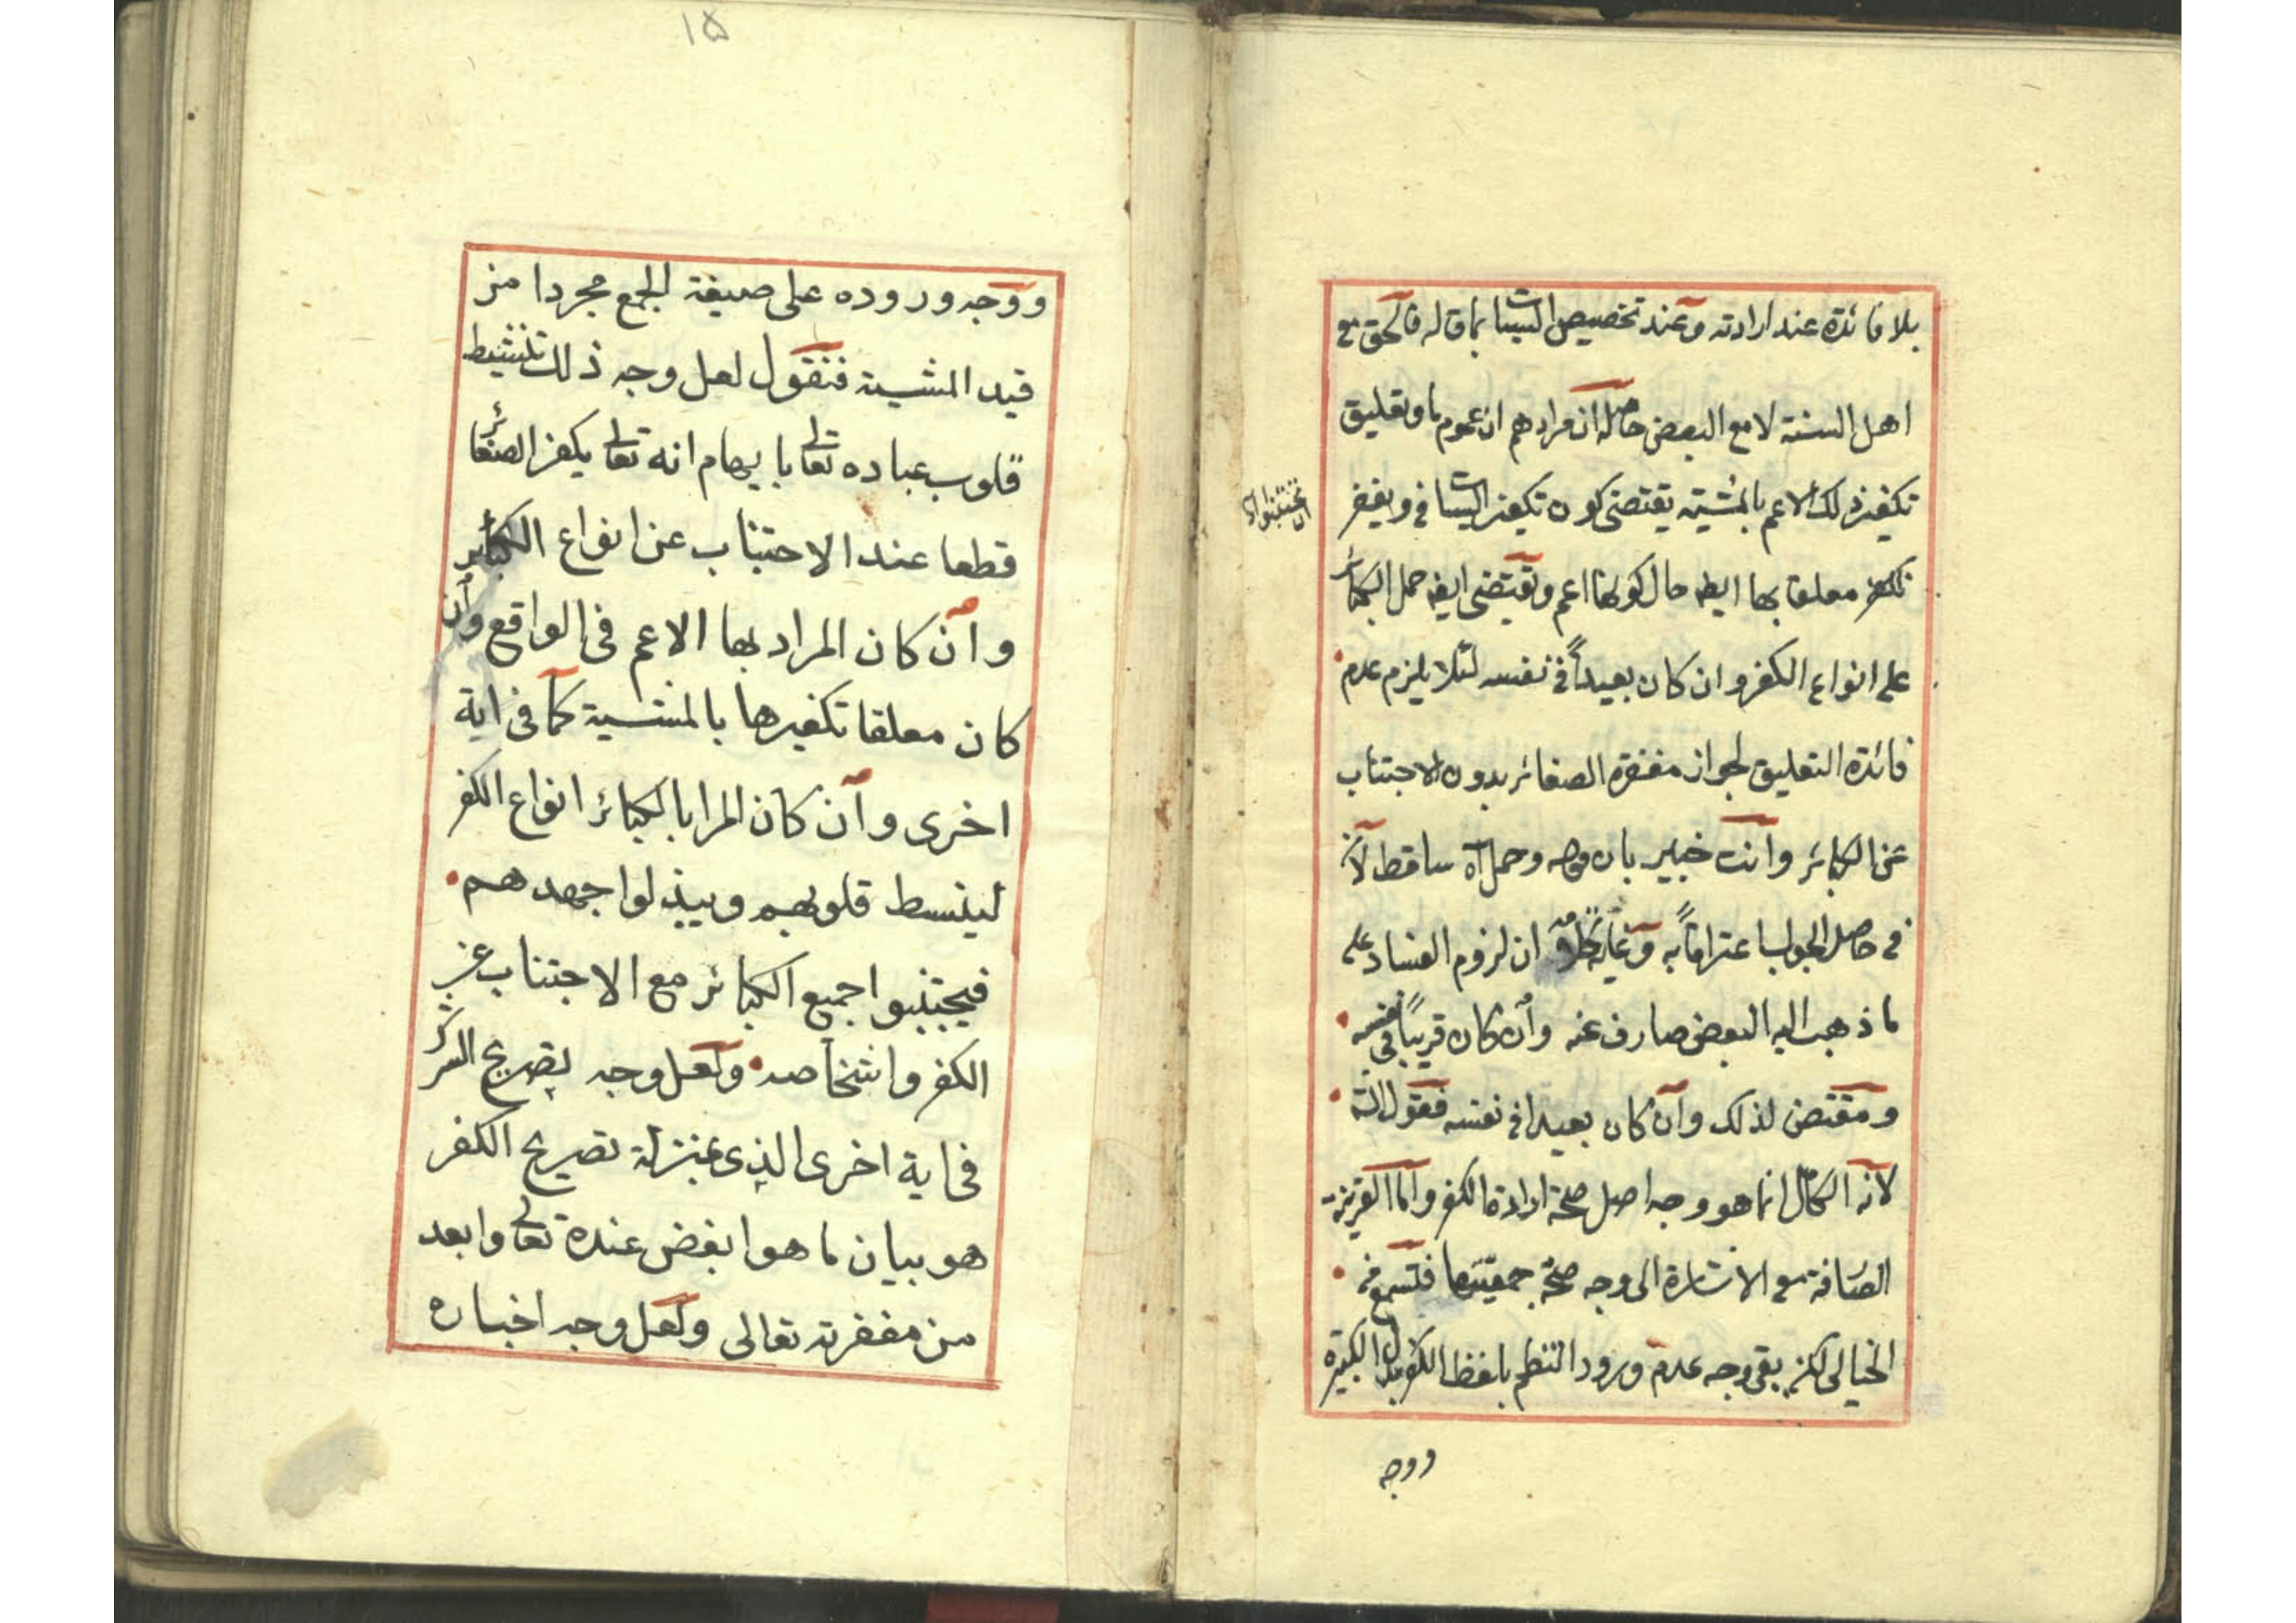 بلا فائدة عند ارادته وعند تخصيص السيئات بما قاله فالحق مع
اهل السنة لا مع البعض حاصله ان مرادهم ان عموم ما وتعليق
تكفير ذلك الاعم بالمشية يقتضى كون تكفير السيئات فى ويغفر
ان تجتنبوا
معلقا بها ايضا حال كونها اعم وتقتضى ايضا حمل الكبائر
على انواع الكفر وان كان بعيداً فى نفسه لئلا يلزم عدم
فائدة التعليق لجواز مغفرة الصغائر بدون الاجتناب
عن الكبائر وانت خبير بان وحمل اه ساقط لانه
فى حاصل الجواب اعترافاً به وغاية ان لزوم الفساد على
ما ذهب اليه البعض صارف عنه وان كان قريباً فى نفسه
ومقتض لذلك وان كان بعيدا فى نفسه فقول الشه
لانه الكامل انما هو وجه اصل صحة ارادة الكفر واما القرينة
الصارفة مع الاشارة الى وجه صحة جمعيتها فتسمع من
الخيالى لكن بقى وجه عدم ورود النظم بلفظ الكفر بدل الكبيرة
ووجه
١٥
ووجه وروده على صيغة الجمع مجردا من
قيد المشية فنقول لعل وجه ذلك تنشيط
قلوب عباده تعالى بايهام انه تعالى يكفر الصغائر
قطعا عند الاجتناب عن انواع الكبائر
وان كان المراد بها الاعم فى الواقع وان
كان معلقا تكفيرها بالمشية كما فى اية
اخرى وان كان المرا بالكبائر انواع الكفر
لينبسط قلوبهم ويبذلوا جهدهم
فيجتنبوا جميع الكبائر مع الاجتناب عن
الكفر واشخاصه ولعل وجه تصريح الشرك
فى اية اخرى الذى بمنزلة تصريح الكفر
هو بيان ما هو ابغض عنده تعالى وابعد
من مغفرته تعالى ولعل وجه اخباره